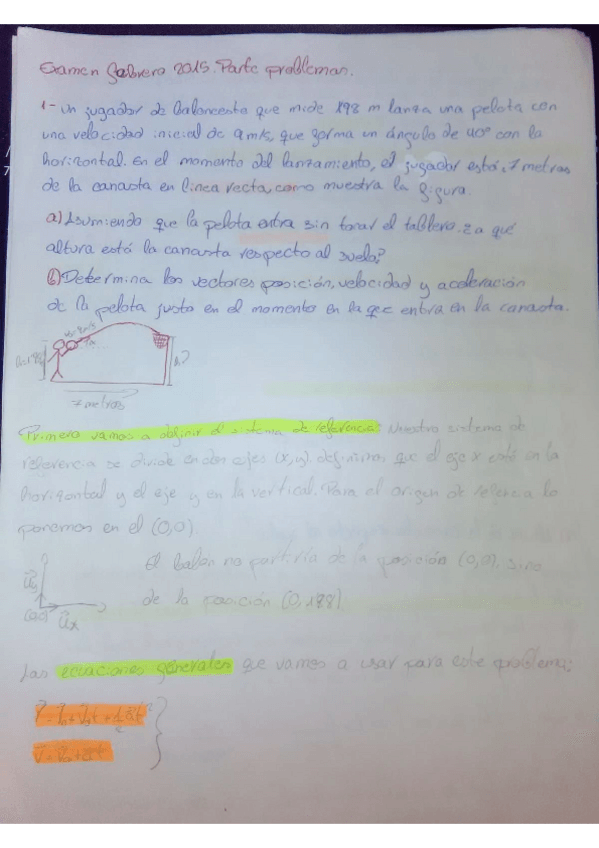 Examen febrero 2015. Parte problemas.
1- Un jugador de baloncesto que mide 1'98 m lanza una pelota con
una velocidad inicial de 9m/s, que forma un ángulo de 40º con la
horizontal. En el momento del lanzamiento, el jugador está, 7 metros
de la canasta en linea recta, como muestra la figura.
a) Asumiendo que la pelota entra sin tocar el tablero. ¿a qué
altura está la canasta respecto al suelo?
b) Determina los vectores posición, velocidad y aceleración
de la pelota justo en el momento en la que entra en la canasta.
h?
7 metros
Primero vamos a definir el sistema de referencia: Nuestro sistema de
referencia se divide en dos ejes (x,y) definimos que el eje x está en la
horizontal y el eje y en la vertical. Para el origen de referencia lo
ponemos en el (0,0).
El balón no partiría de la posición (0,0), sino
de la posición (0,1'98)
(0,0) ux
Las ecuaciones generales que vamos a usar para este problema: